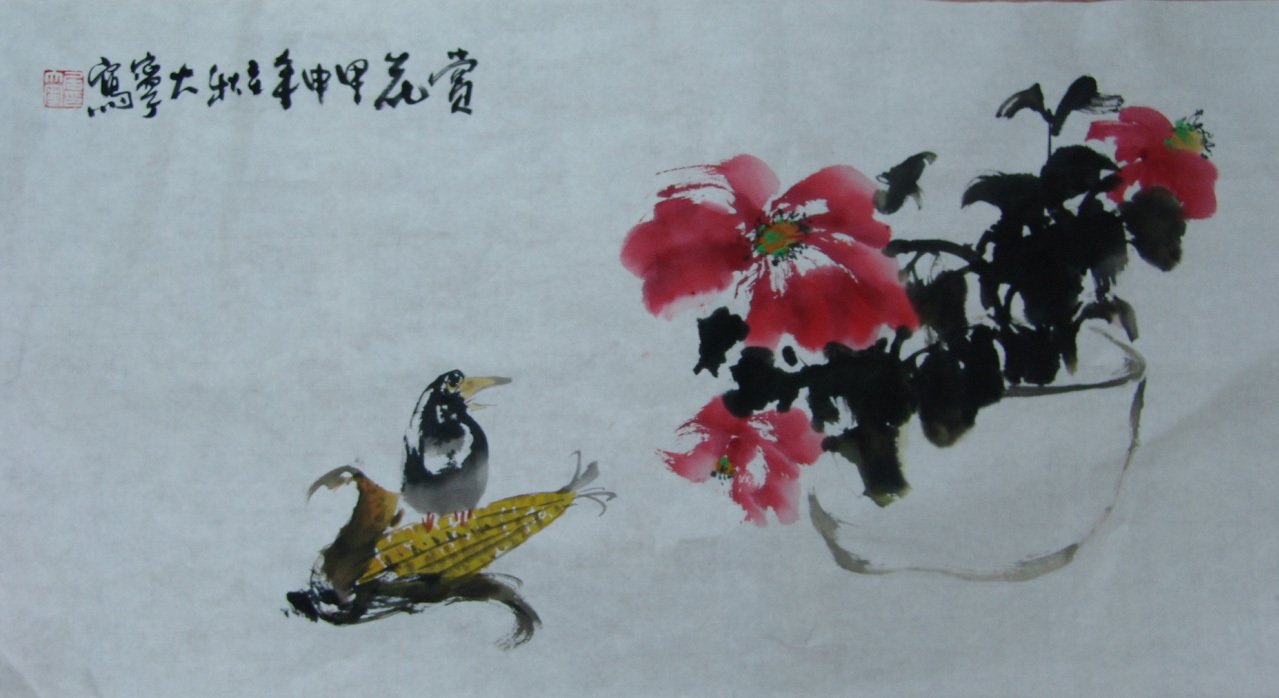 賞花甲申年立秋大寧寫